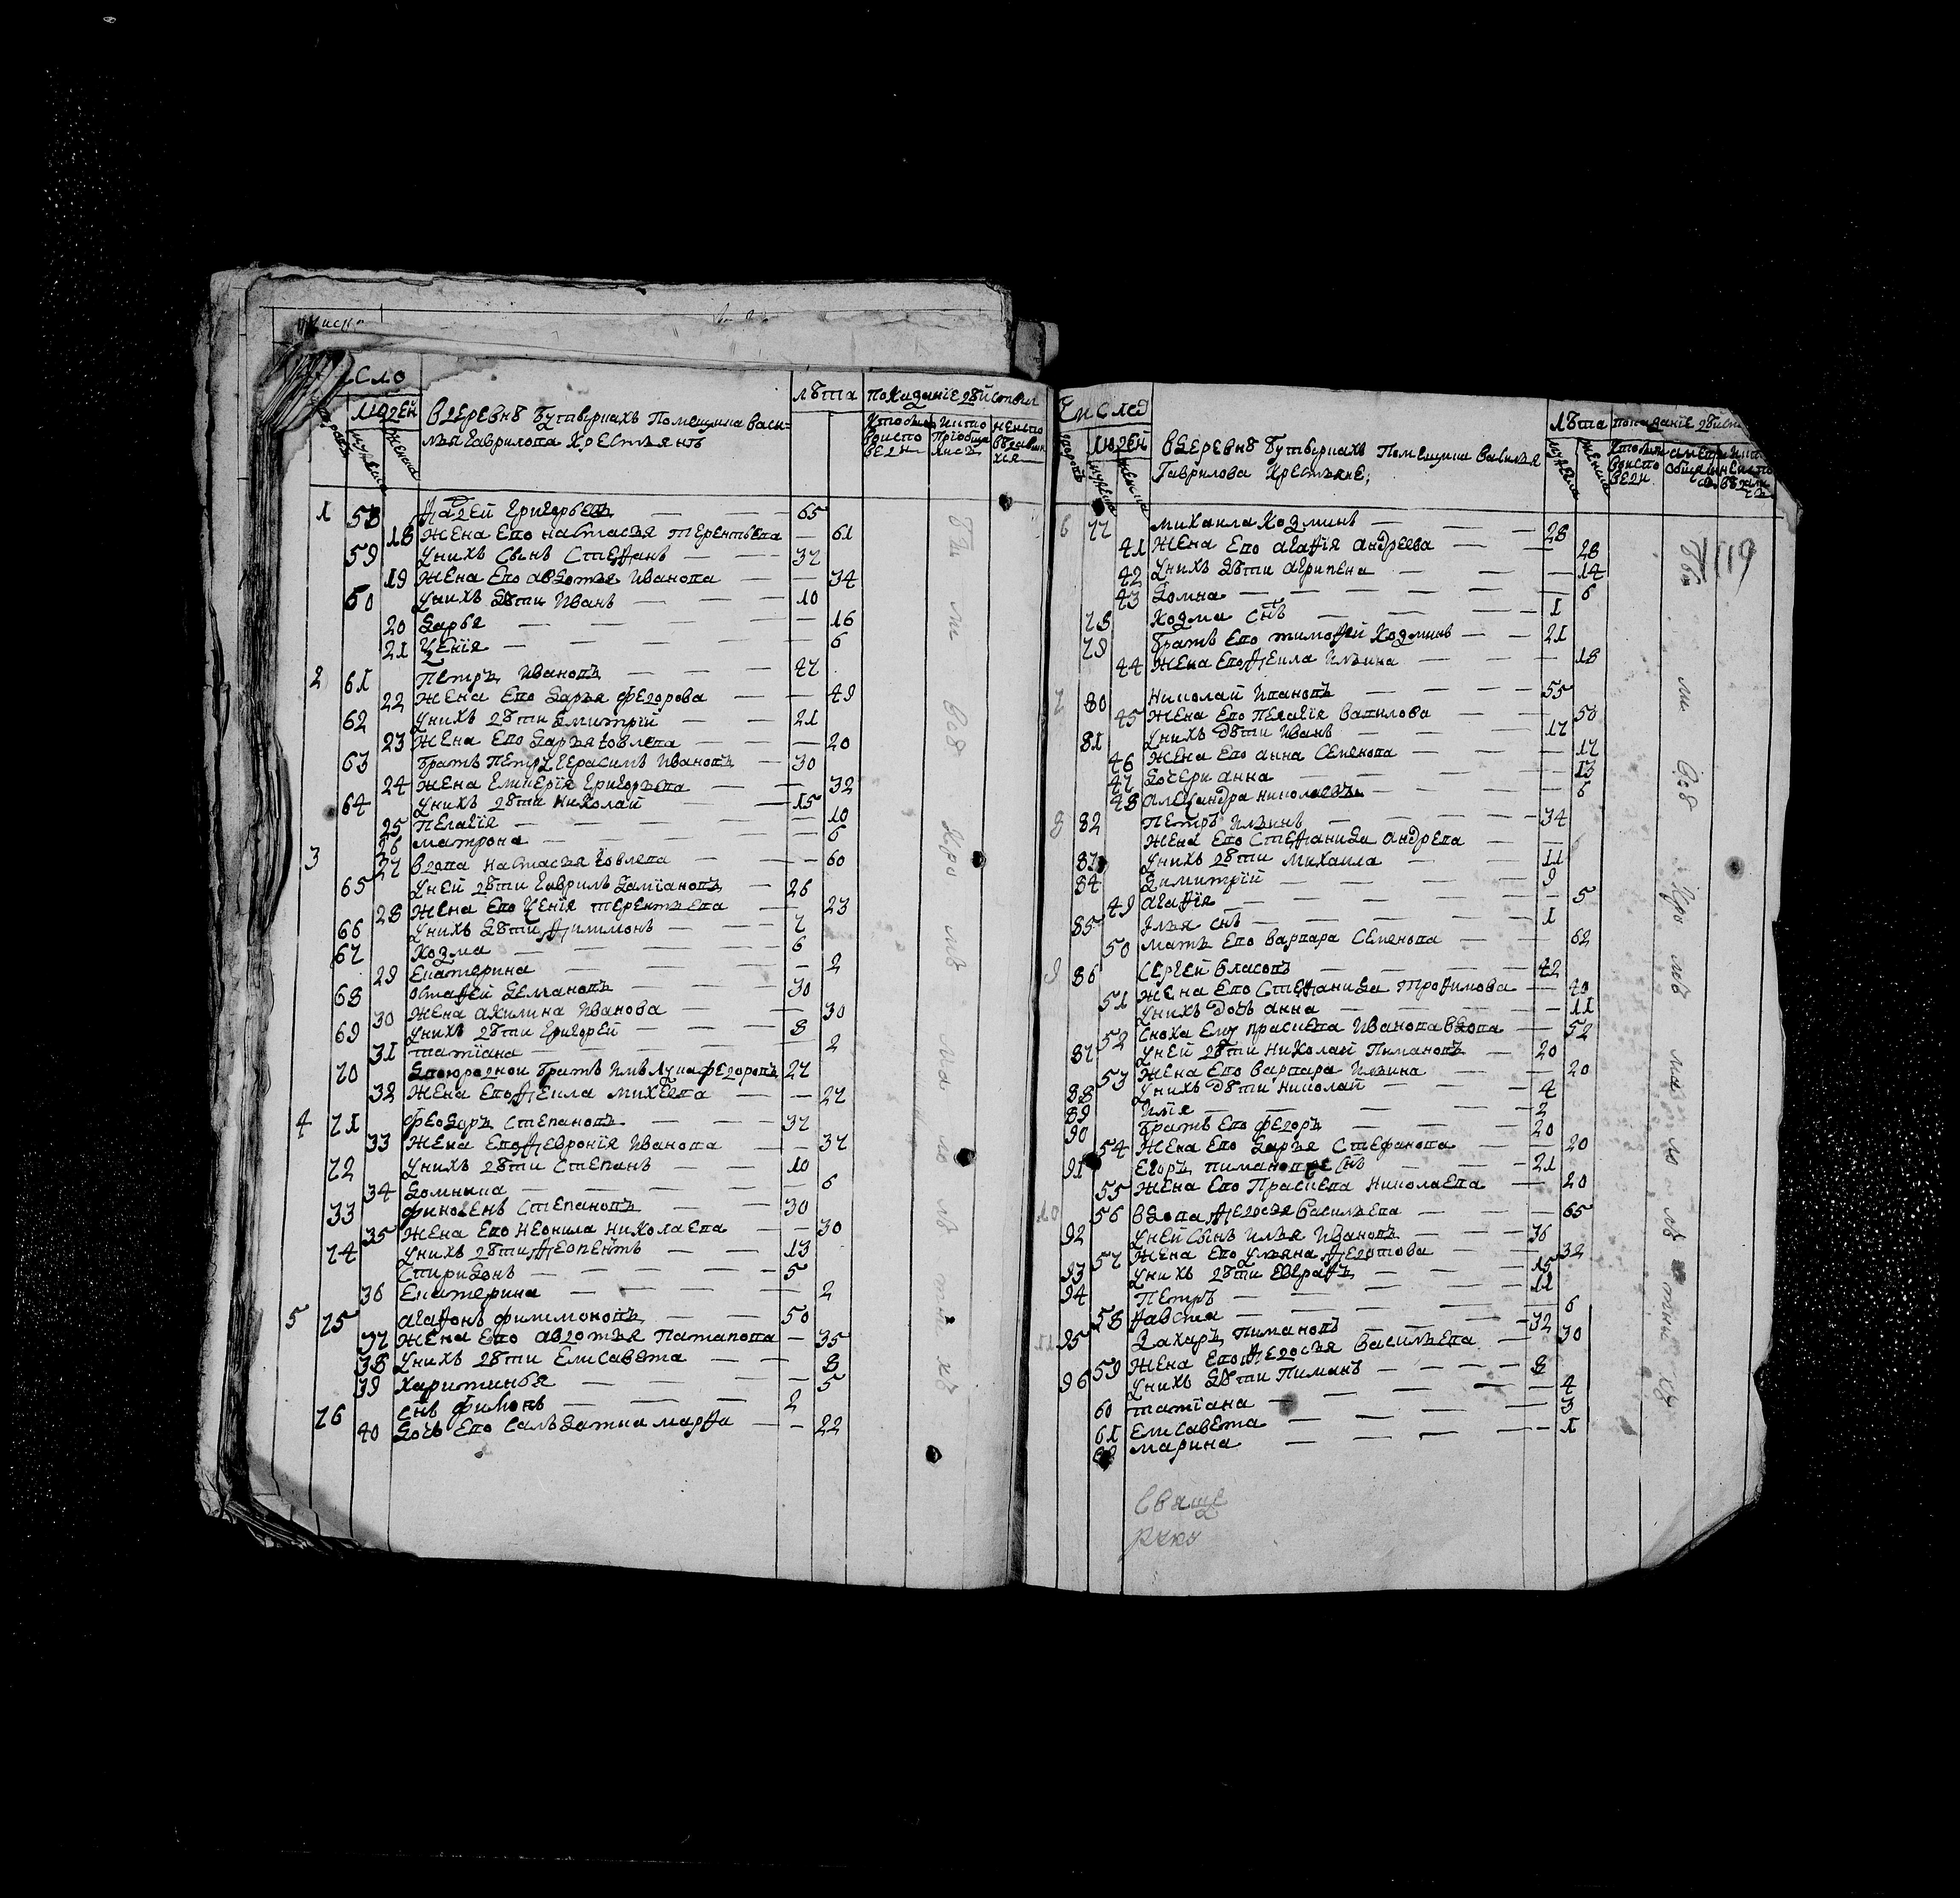 число
людей
В деревнѣ Бутырнахъ Помещика Васи-
лья Гаврилова Крестьянъ
лѣта
показаніе дѣйства
1 58 Фадей Григорьевъ 65
18 Жена Ево Настасья Терентьева 61
59 У нихъ Сынъ Стефанъ 37
19 Жена Ево Авдотья Иванова 34
60 У нихъ Дѣти Иванъ 10
20 Дарья 16
21 Ксенія 6
2 61 Петръ Ивановъ 47
22 Жена Ево Дарья Федорова 49
62 У нихъ дѣти Дмитрій 21
23 Жена Ево Дарья Іовлева 20
63 Братъ Петру Герасимъ Ивановъ 30
24 Жена Гликерія Григорьева 32
64 У нихъ дѣти Николай 15
25 Пелагія 10
26 Матрона 6
3 27 Вдова Настасья Іовлева 60
65 У ней дѣти Гаврилъ Даміановъ 26
28 Жена Ево Ксенія Терентьева 23
66 У нихъ Дѣти Филимонъ 7
67 Козма 6
29 Екатерина 2
68 Остафей Демьановъ 30
30 Жена Акилина Иванова 30
69 У нихъ дѣти Григорей 8
31 Татіана 2
70 Двоюродной Братъ Имъ Лука Федоровъ 27
32 Жена Ево Фекла Михеева 27
4 71 Феодоръ Степановъ 37
33 Жена Ево Февронія Иванова 37
72 У нихъ дѣти Степанъ 10
34 Домника 6
33 Финогенъ Степановъ 30
35 Жена Ево Неонила Николаева 30
74 У нихъ дѣти Феопентъ 13
Спиридонъ 5
36 Екатерина 2
5 75 Агафонъ Филимоновъ 50
37 Жена Ево Авдотья Патапова 35
38 У нихъ дѣти Елисавета 8
39 Харитинья 5
76 Снъ Филонъ 2
40 Дочь Ево Салъдатка Марфа 22
число
людей
В Деревнѣ Бутырнахъ Помещика Василья
Гаврилова Крестьяне,
лѣта
119
6 77 Михаила Козминъ 28
41 Жена Ево Агафія Андреева 28
42 У нихъ Дѣти Агрипена 14
43 Домна 6
78 Козма Снъ 1
79 Братъ Ево Тимофей Козминъ 21
44 Жена Ево Фекла Ильина 18
7 80 Николай Ивановъ 55
45 Жена Ево Пелагія Вавилова 50
81 У нихъ Дѣти Иванъ 17
46 Жена Ево Анна Семенова 17
47 Дочери Анна 13
48 Александра Николаевы 6
8 82 Петръ Ильинъ 34
Жена Ево Стефанида Андрева
83 У нихъ дѣти Михаила 11
84 Димитрій 9
49 Агафія 5
85 Илья Снъ 1
50 Мать Ево Варвара Семенова 62
9 86 Сергей Власовъ 42
51 Жена Ево Стефанида Трофимова 40
У нихъ Дочь Анна 11
52 Сноха Ему Прасковья Иванова Вдова 52
87 У ней дѣти Николай Пимановъ 20
53 Жена Ево Варвара Ильина 20
88 У нихъ Дѣти Николай 4
89 Илія 2
90 Братъ Ево Федоръ 20
54 Жена Ево Дарья Стефанова 20
91 Егоръ Пимановъ Снъ 21
55 Жена Ево Праскева Николаева 20
10 56 Вдова Федосья Васильева 65
92 У ней Сынъ Илья Ивановъ 36
57 Жена Ево Ульяна Федотова 32
93 У нихъ дѣти Евграфъ 15
94 Петръ 11
58 Фавста 6
11 95 Захаръ Пимановъ 32
59 Жена Ево Федосья Васильева 30
96 У нихъ Дѣти Пиманъ 8
60 Татіана 4
61 Елисавета 3
62 Марина 1
Свяще